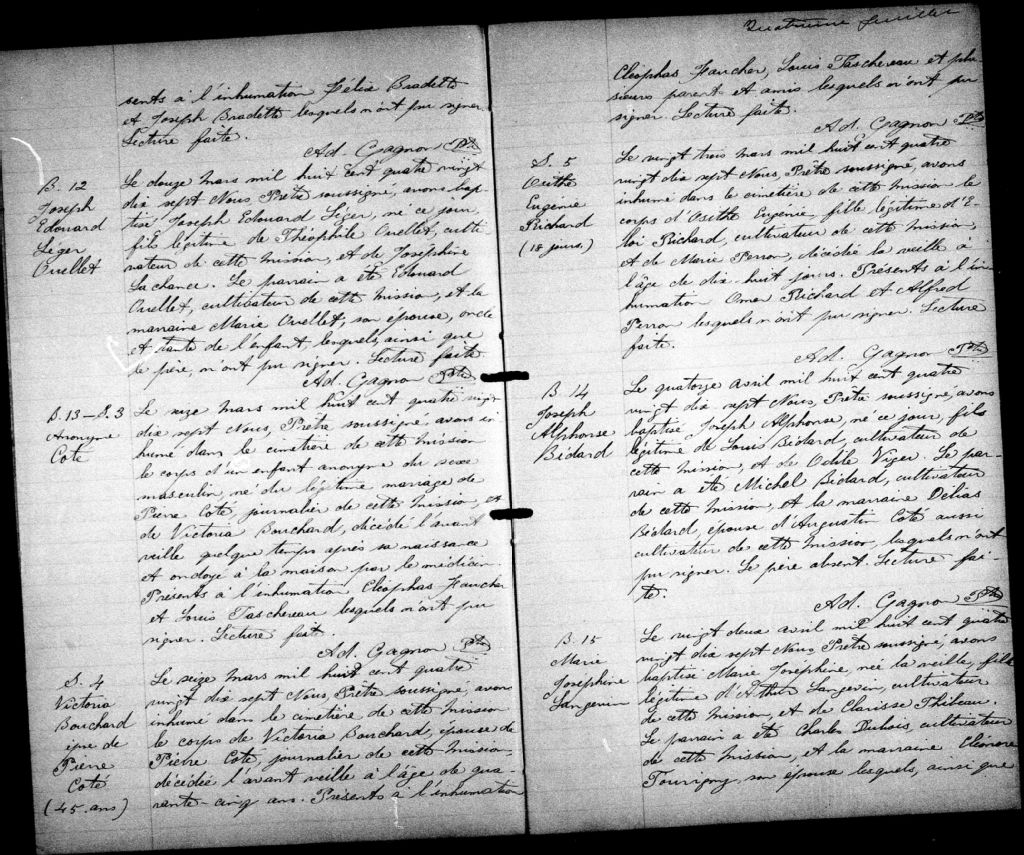 sents à l'inhumation Félix Bradette
et Joseph Bradette lesquels n'ont pu signer.
Lecture faite.
Ad. Gagnon Ptre
B. 12
Joseph
Edouard
Léger
Ouellet
Le douze mars mil huit cent quatre vingt
dix sept Nous, Prêtre soussigné, avons bap
tisé Joseph Edouard Léger, né ce jour,
fils légitime de Théophile Ouellet, culti
vateur de cette mission, et de Joséphine
Lachance. Le parrain a été Edouard
Ouellet, cultivateur de cette mission, et la
marraine Marie Ouellet, son épouse, oncle
et tante de l'enfant, lesquels, ainsi que
le père, n'ont pu signer. Lecture faite
Ad. Gagnon Ptre
B. 13 – S. 3
Anonyme
Coté
Le seize mars mil huit cent quatre vingt
dix sept Nous, Prêtre soussigné, avons in
humé dans le cimetière de cette mission
le corps d'un enfant anonyme du sexe
masculin, né du légitime mariage de
Pierre Coté, journalier de cette mission, et
de Victoria Bouchard, décédé l'avant
veille quelque temps après sa naissance
et ondoyé à la maison par le médecin.
Présents à l'inhumation Cléophas Faucher
et Louis Taschereau lesquels n'ont pu
signer. Lecture faite.
Ad. Gagnon Ptre
S. 4
Victoria
Bouchard
épse de
Pierre
Coté
(45. ans)
Le seize mars mil huit cent quatre
vingt dix sept Nous, Prêtre soussigné, avons
inhumé dans le cimetière de cette mission
le corps de Victoria Bouchard, épouse de
Pierre Coté, journalier de cette mission
décédée l'avant veille à l'âge de qua-
rante-cinq ans. Présents à l'inhumation
Quatrième feuillet
Cléophas Faucher, Louis Taschereau et plu-
sieurs parents et amis lesquels n'ont pu
signer. Lecture faite.
Ad. Gagnon Ptre
S. 5
Eugénie
Richard
(18 jours.)
Le vingt trois mars mil huit cent quatre
vingt dix sept Nous, Prêtre soussigné, avons
inhumé dans le cimetière de cette mission le
corps d'Osithe Eugénie, fille légitime d'E-
loi Richard, cultivateur de cette mission,
et de Marie Perron, décédée la veille à
l'âge de dix-huit jours. Présents à l'in
humation Omer Richard et Alfred
Perron lesquels n'ont pu signer. Lecture
faite.
Ad. Gagnon Ptre
B. 14
Joseph
Alphonse
Bédard
Le quatorze avril mil huit cent quatre
vingt dix sept Nous, Prêtre soussigné, avons
baptisé Joseph Alphonse, né ce jour, fils
légitime de Louis Bédard, cultivateur de
cette mission, et de Odile Viger. Le par-
rain a été Michel Bédard, cultivateur
de cette mission, et la marraine Délias
Bédard, épouse d'Augustin Coté aussi
cultivateur de cette mission, lesquels n'ont
pu signer. Le père absent. Lecture fai-
te.
Ad. Gagnon Ptre
B. 15
Marie
Joséphine
Langevin
Le vingt deux avril mil huit cent quatre
vingt dix sept Nous, Prêtre soussigné, avons
baptisé Marie Joséphine, née la veille, fille
légitime d'Arthur Langevin, cultivateur
de cette mission, et de Clarisse Thibeau.
Le parrain a été Charles Dubois, cultivateur
de cette mission, et la marraine Eléonore
Tourigny, son épouse lesquels, ainsi que